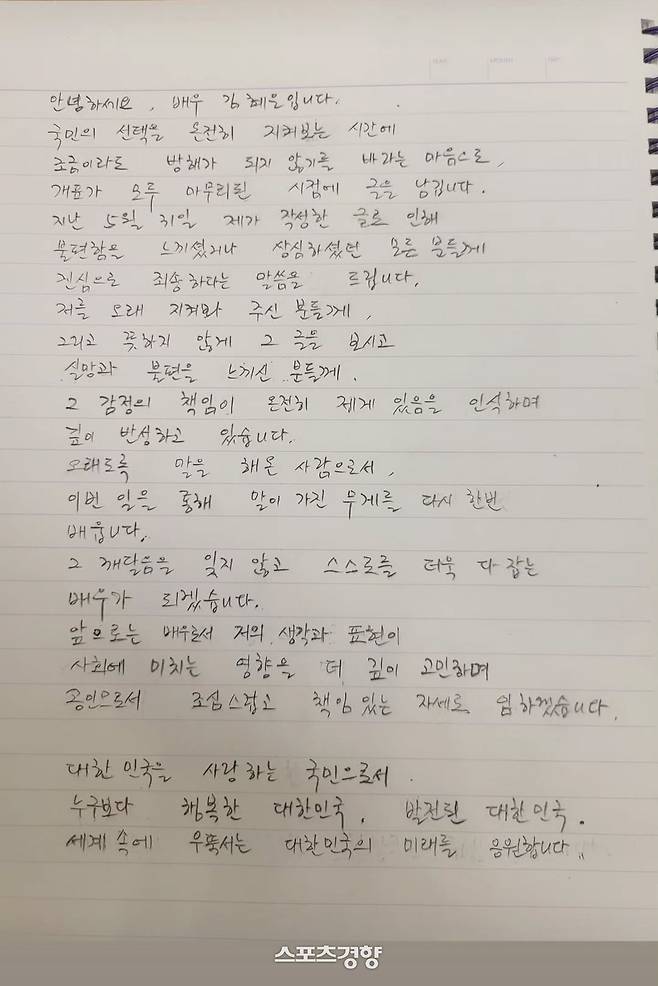 안녕하세요, 배우 김혜은입니다.
국민의 선택을 온전히 지켜보는 시간에
조금이라도 방해가 되지 않기를 바라는 마음으로,
개표가 모두 마무리된 시점에 글을 남깁니다.
지난 5월 31일 제가 작성한 글로 인해
불편함을 느끼셨거나 상심하셨던 모든 분들께
진심으로 죄송하다는 말씀을 드립니다.
저를 오래 지켜봐 주신 분들께,
그리고 뜻하지 않게 그 글을 보시고
실망과 불편을 느끼신 분들께.
그 감정의 책임이 온전히 제게 있음을 인식하며
깊이 반성하고 있습니다.
오래도록 말을 해온 사람으로서,
이번 일을 통해 말이 가진 무게를 다시 한번
배웁니다.
그 깨달음을 잊지 않고 스스로를 더욱 다잡는
배우가 되겠습니다.
앞으로는 배우로서 저의 생각과 표현이
사회에 미치는 영향을 더 깊이 고민하며
공인으로서 조심스럽고 책임 있는 자세로 임하겠습니다.
대한민국을 사랑하는 국민으로서.
누구보다 행복한 대한민국, 발전된 대한민국.
세계 속에 우뚝서는 대한민국의 미래를 응원합니다..
스포츠경향